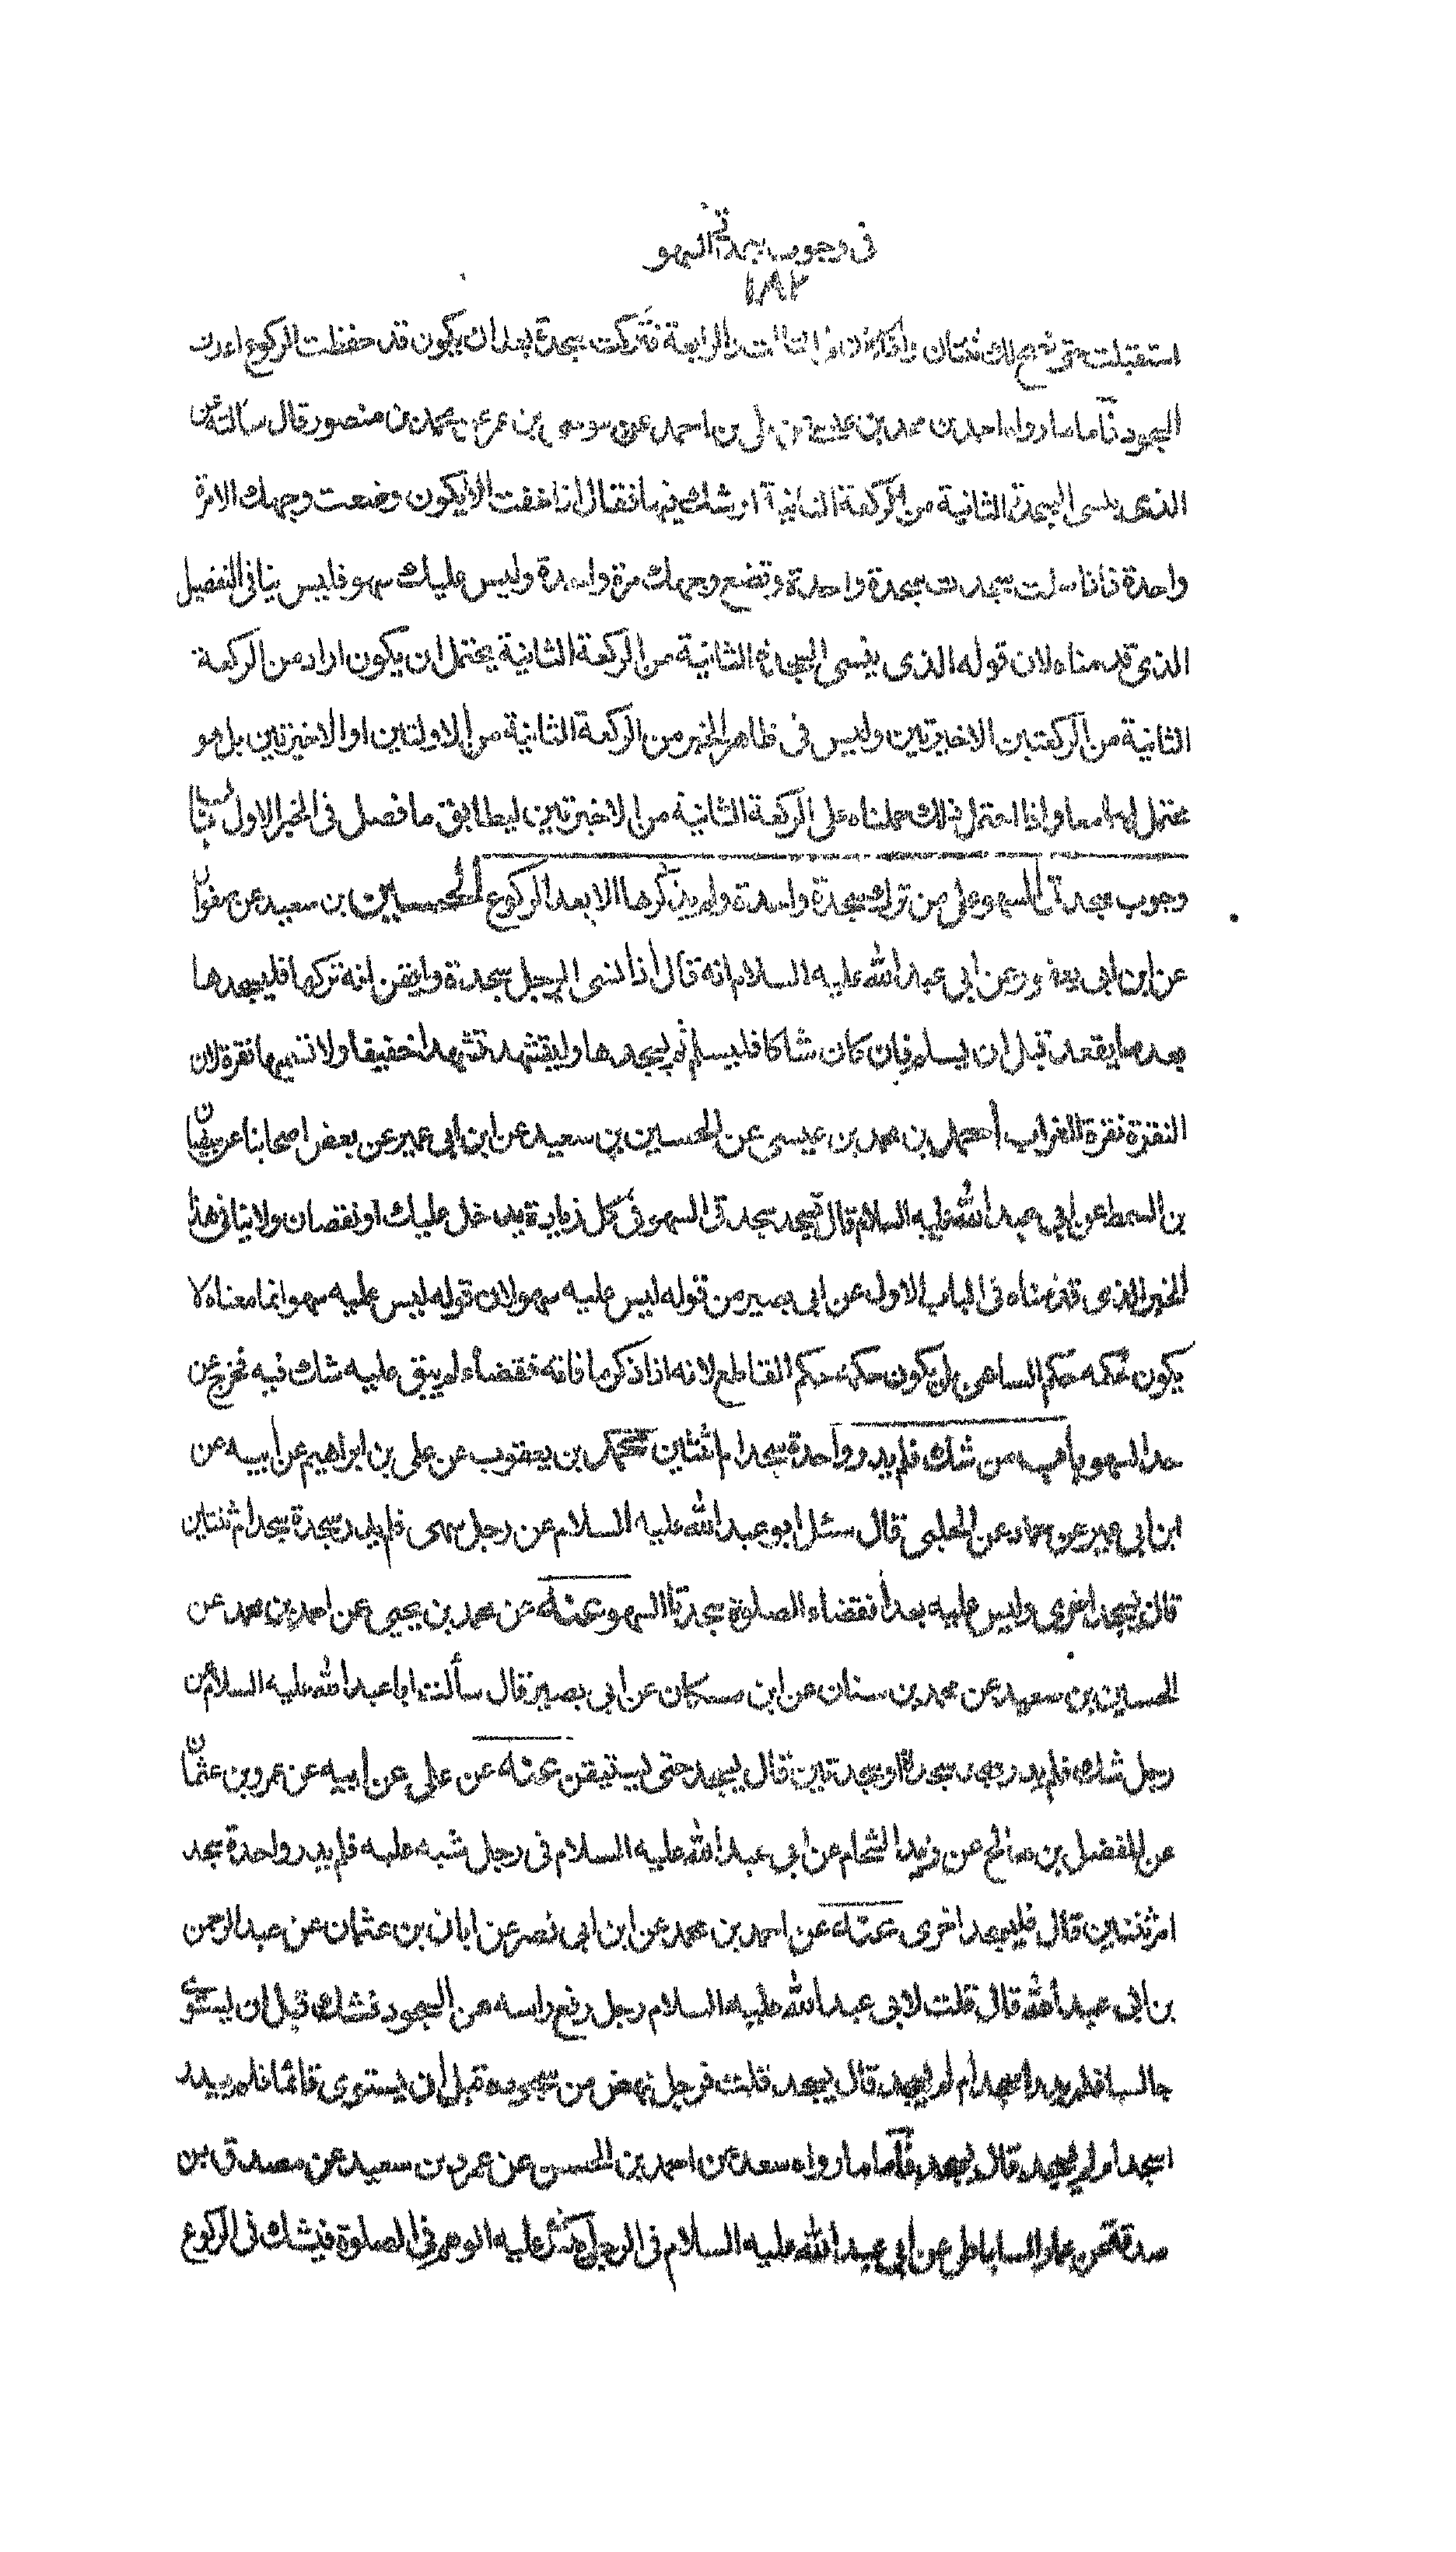 في وجوب سجدتي السهو
١٨٢
استقبلت حتى تصح لك ثنتان واذا كان في الثالثة والرابعة فتركت سجدة بعد ان يكون قد حفظت الركوع اعدت
السجود فأما ما رواه احمد بن محمد بن عيسى عن علي بن احمد عن موسى بن عمر عن محمد بن منصور قال سألته عن
الذى ينسى السجدة الثانية من الركعة الثانية او شك فيها فقال اذا خفت الا يكون وضعت وجهك الا مرة
واحدة فاذا سلمت سجدت سجدة واحدة وتضع وجهك مرة واحدة وليس عليك سهو فليس ينافى التفصيل
الذى قدمناه لان قوله الذى ينسى السجدة الثانية من الركعة الثانية يحتمل ان يكون اراد من الركعة
الثانية من الركعتين الاخيرتين وليس في ظاهر الخبر من الركعة الثانية من الاولتين او الاخيرتين بل هو
محتمل لهما معا واذا احتمل ذلك حملناه على الركعة الثانية من الاخيرتين ليطابق ما فصل في الخبر الاول باب
وجوب سجدتى السهو على من ترك سجدة واحدة ولم يذكرها الا بعد الركوع الحسين بن سعيد عن صفوان
عن ابن ابى يعفور عن ابي عبد الله عليه السلام انه قال اذا نسى الرجل سجدة وايقن انه تركها فليسجدها
بعد ما يقعد قبل ان يسلم فان كان شاكا فليسلم ثم ليسجدها وليتشهد تشهدا خفيفا ولا تسميها نقرة لان
النقرة نقرة الغراب أحمد بن محمد بن عيسى عن الحسين بن سعيد عن ابن ابي عمير عن بعض اصحابنا عن سفيان
بن السمط عن ابي عبد الله عليه السلام قال تسجد سجدتى السهو في كل زيادة يدخل عليك او نقصان ولا ينافى هذا
الخبر الذى قدمناه في الباب الاول عن ابي بصير من قوله ليس عليه سهو لان قوله ليس عليه سهو انما معناه لا
يكون حكمه حكم الساهى بل يكون حكمه حكم القاطع لانه اذا ذكر ما فاته فقضاه لم يبق عليه شك فيه فخرج عن
حد السهو باب من شك فلم يدر واحدة سجد ام ثنتين محمد بن يعقوب عن على بن ابراهيم عن أبيه عن
ابن ابي عمير عن حماد عن الحلبى قال سئل ابو عبد الله عليه السلام عن رجل سهى فلم يدر سجدة سجد ام ثنتين
قال يسجد اخرى وليس عليه بعد أنقضاء الصلوة سجدتا السهو عنه عن محمد بن يحيى عن احمد بن محمد عن
الحسين بن سعيد عن محمد بن سنان عن ابن مسكان عن ابي بصير قال سألت ابا عبد الله عليه السلام عن
رجل شك فلم يدر سجد سجدة او سجدتين قال يسجد حتى يستيقن عنه عن علي عن ابيه عن عمرو بن عثمان
عن المفضل بن صالح عن زيد الشحام عن ابي عبد الله عليه السلام في رجل شبه عليه فلم يدر واحدة سجد
ام ثنتين قال فليسجد اخرى عنه عن احمد بن محمد عن ابن ابي نصر عن ابان بن عثمان عن عبد الرحمن
بن ابى عبد الله قال قلت لابى عبد الله عليه السلام رجل رفع راسه من السجود فشك قبل ان يستوى
جالسا فلم يدر اسجد أم لم يسجد قال يسجد قلت فرجل نهض من سجوده قبل أن يستوى قائما فلم يدر
اسجد ام لم يسجد قال يسجد فأما ما رواه سعد عن احمد بن الحسن عن عمرو بن سعيد عن مصدق بن
صدقة عن عمار الساباطى عن أبي عبد الله عليه السلام في الرجل يشك عليه الوهم في الصلوة فيشك في الركوع